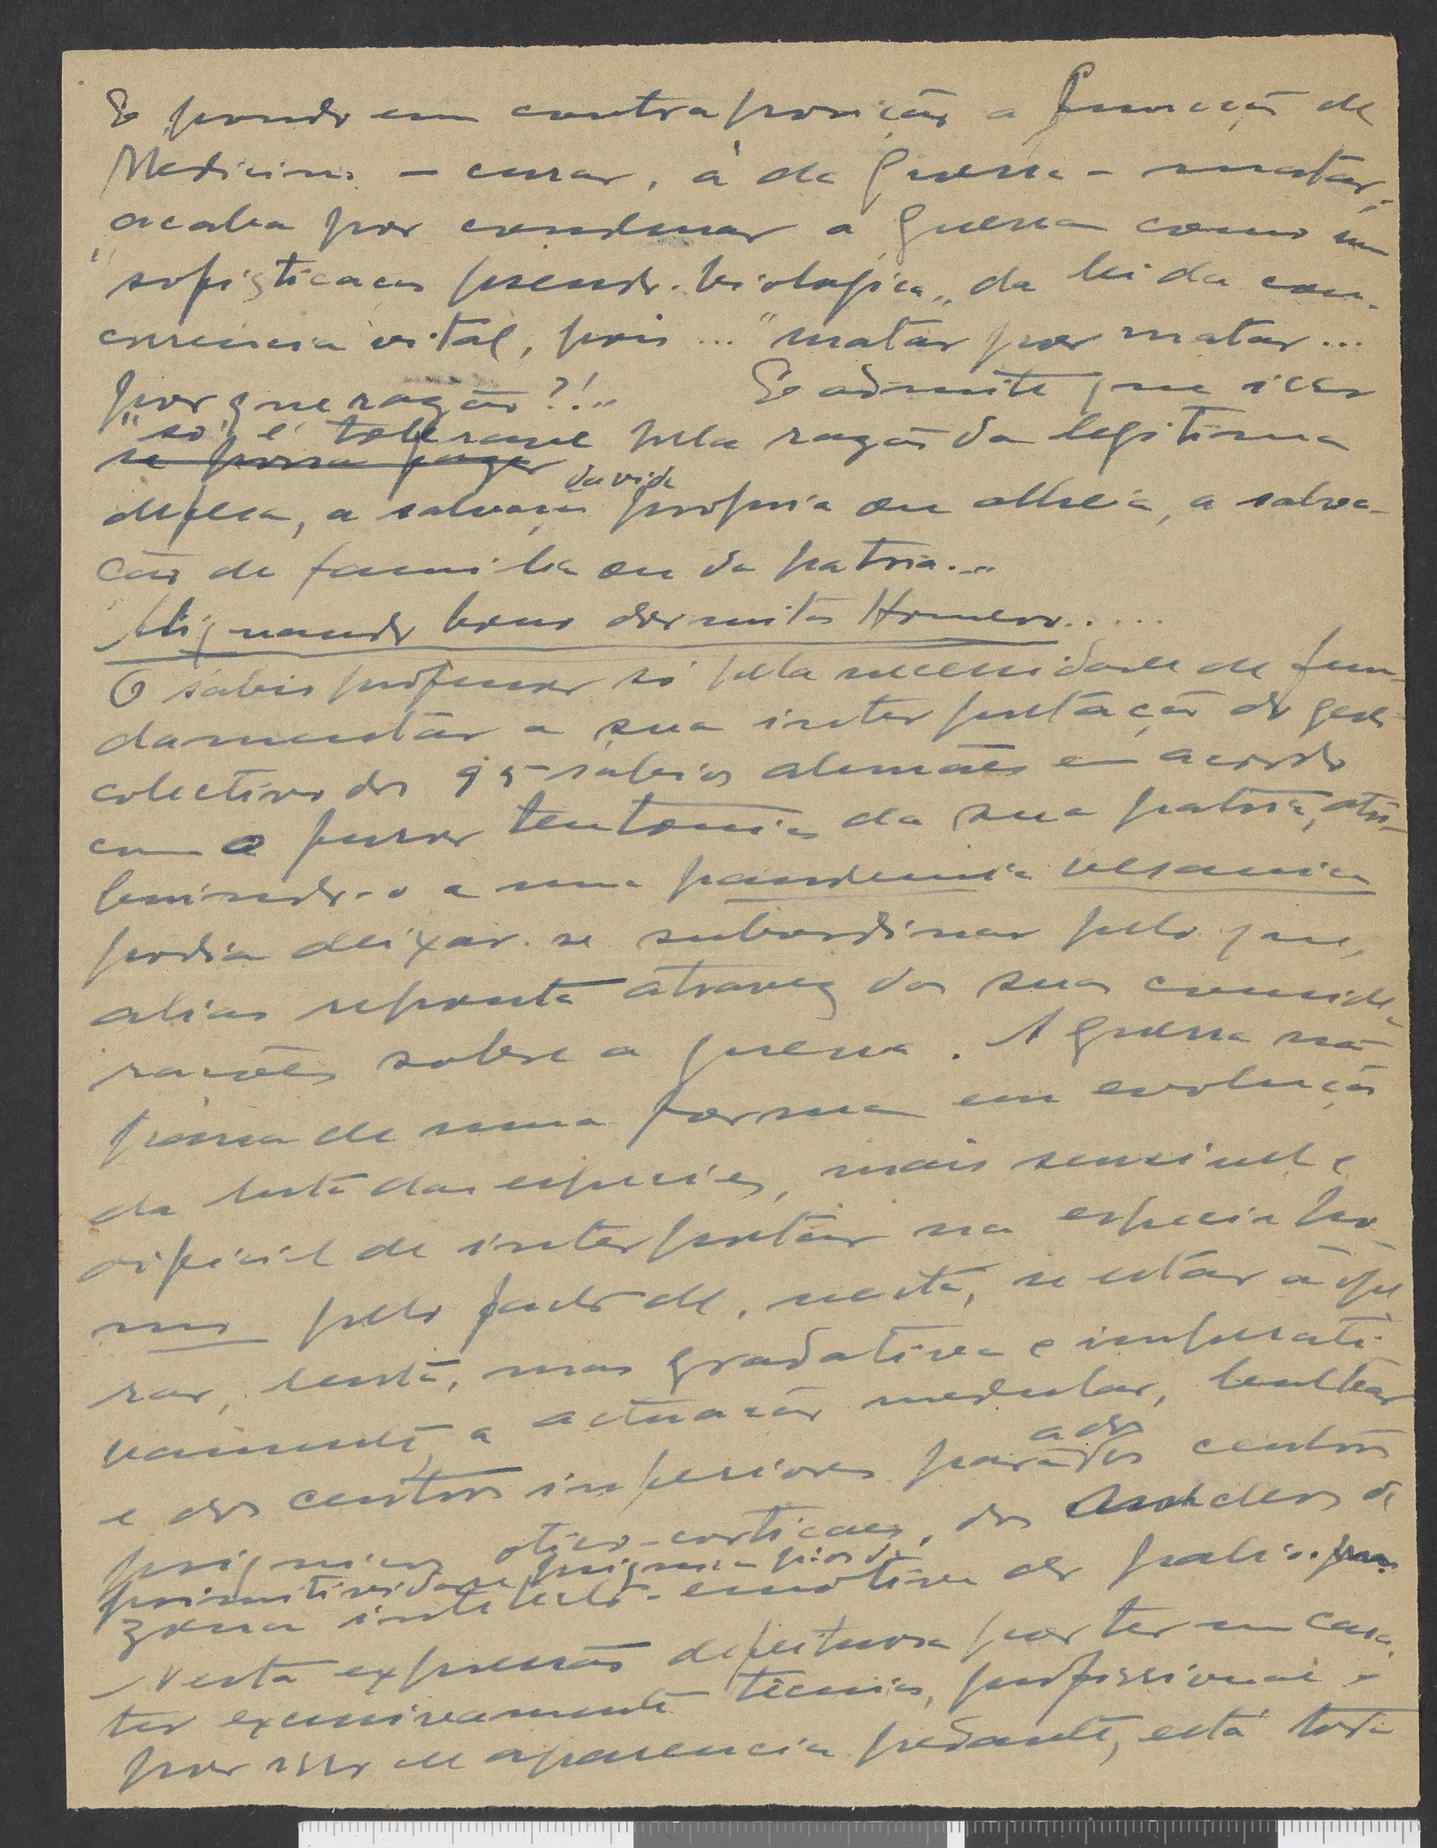 E pondo em contraposição a funcção da
Medicina – curar, á da Guerra – matar,
acaba por condenar a Guerra como um
"sofisticação pseudo-biologica„ da lei da con-
correncia vital, pois ... "matar por matar...
por que razão?!„ E admite que isso
"só é toleravel pela razão da legitima
se possa fazer
da vida
defesa, a salvação propria ou alheia, a salva-
ção da familia ou da patria..„
Aliquando bonus dormitat Homero.....
O sabio professor só pela necessidade de fun-
damentar a sua interpretação do gesto
colectivo dos 95 sabios alemães em acordo
com o furor teutonico da sua patria, atri-
buindo-o a uma pandemia vesanica
podia deixar-se subordinar pelo que,
alias reponta atravez das suas conside-
rações sobre a guerra. A Guerra não
passa de uma forma em evolução
da luta das especies, mais sensivel e
dificil de interpretar na especie ho-
mo pelo facto de, nesta, se estar a ope-
rar, lenta, mas gradativa e imperati-
vamente, a actuação medular, bulbar
e dos centros inferiores para a dos centros
psiquicos otico-corticaes, dos de
primitividade psiquica
zona intelecto-emotiva do
Nesta expressão defeituosa por ter um cará-
ter excessivamente tecnico, profissional e
por isso de aparencia pedante, está toda